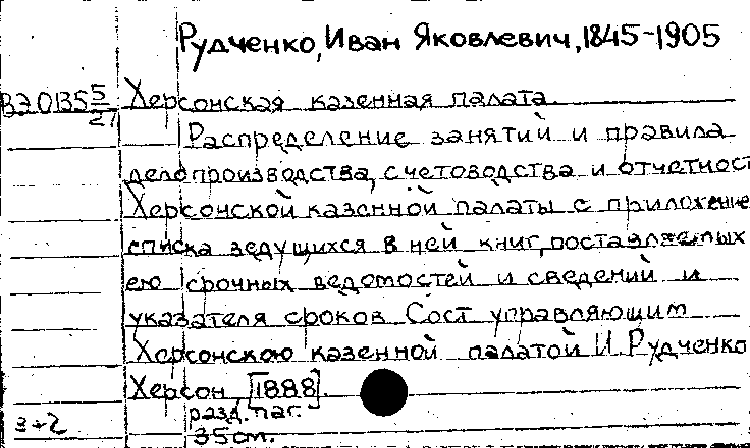 Рудченко, Иван Яковлевич, 1845-1905
Херсонская казенная палата.
Распределение занятий и правила
делопроизводства, счетоводства и отчетност
Херсонской казенной палаты с приложение
списка ведущихся в ней книг, поставляемых
ею срочных ведомостей и сведений и
указателя сроков. Сост управляющим
Херсонскою казенной палатой И. Рудченко
Херсон, [1888].
разд. паг.
35 см.
3+2